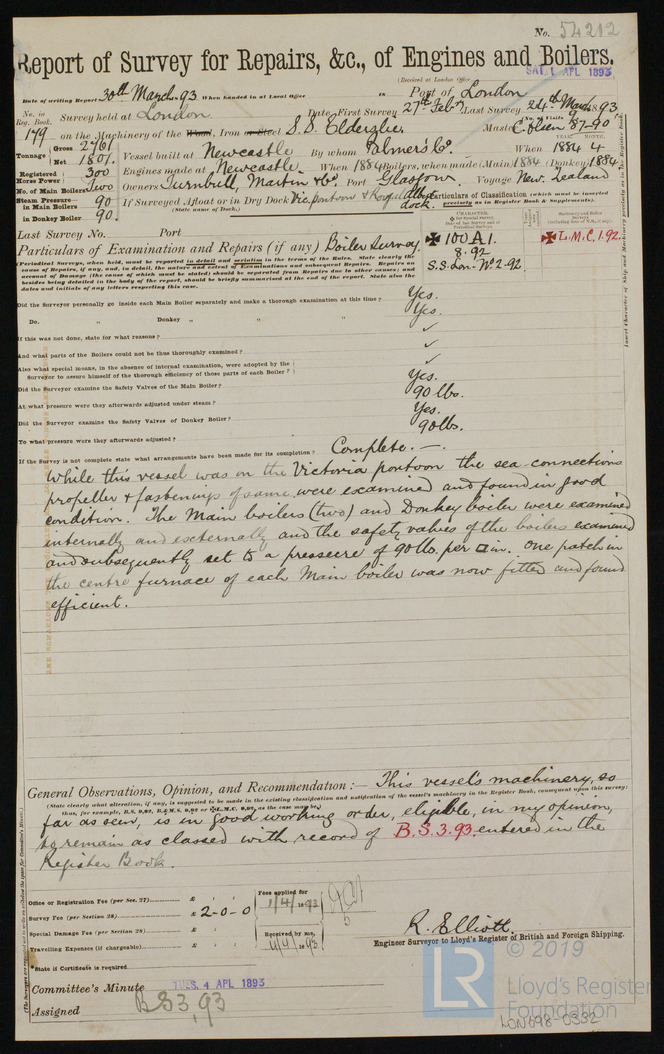 No. 54212
Report of Survey for Repairs, &c., of Engines and Boilers.
(Received at London Office
SAT. 1 APL 1893
Date of writing Report 30th March 93 When handed in at Local Office in Port of London
No. in Reg. Book. Survey held at London Date, First Survey 27th Feby Last Survey 24th March 1893
179 on the Machinery of the Wood, Iron or Steel S.S. Elderslie Master C. Olsen 87-90
Tonnage Gross 2761 Net 1801 Vessel built at Newcastle By whom Palmer's Co. When 1884 4
Registered Horse Power 300 Engines made at Newcastle When 1884 Boilers, when made (Main) 1884 (Donkey) 1884
No. of Main Boilers Two Owners Turnbull, Martin & Co. Port Glasgow Voyage New Zealand
Steam Pressure in Main Boilers 90 If Surveyed Afloat or in Dry Dock Vic. pontoon & Royal Albert dock.
(State name of Dock.)
in Donkey Boiler 90.
Particulars of Classification (which must be inserted precisely as in Register Book & Supplements).
Last Survey No. Port
✠ 100 A1.
8.92
S.S. Lon. No 2-92.
✠ L.M.C. 1.92.
Particulars of Examination and Repairs (if any) Boiler Survey
Periodical Surveys, when held, must be reported in detail and seriatim in the terms of the Rules. State clearly the
cause of Repairs, if any, and, in detail, the nature and extent of Examinations and subsequent Repairs. Repairs on
account of Damage (the cause of which must be stated) should be separated from Repairs due to other causes; and
besides being detailed in the body of the report, should be briefly summarised at the end of the report. State also the
dates and initials of any letters respecting this case.
Did the Surveyor personally go inside each Main Boiler separately and make a thorough examination at this time? Yes.
Do. " Donkey " " " Yes.
If this was not done, state for what reasons? ✓
And what parts of the Boilers could not be thus thoroughly examined? ✓
Also what special means, in the absence of internal examination, were adopted by the
Surveyor to assure himself of the thorough efficiency of those parts of each Boiler? ✓
Did the Surveyor examine the Safety Valves of the Main Boiler? Yes.
At what pressure were they afterwards adjusted under steam? 90 lbs.
Did the Surveyor examine the Safety Valves of Donkey Boiler? Yes.
To what pressure were they afterwards adjusted? 90 lbs.
If the Survey is not complete state what arrangements have been made for its completion? Complete. —
While this vessel was on the Victoria pontoon the sea connections
propeller & fastenings of same, were examined and found in good
condition. The Main boilers (two) and Donkey boiler were examined
internally and externally and the safety valves of the boilers examined
and subsequently set to a pressure of 90 lbs. per □ in. One patch in
the centre furnace of each Main boiler was now fitted and found
efficient.
General Observations, Opinion, and Recommendation:— This vessel's machinery, so
(State clearly what alteration, if any, is suggested to be made in the existing classification and notification of the vessel's machinery in the Register Book, consequent upon this survey;
thus, for example, B.S. 9,92, B.&M.S. 9,92 or ✠L.M.C. 9,92, as the case may be.)
far as seen, is in good working order, eligible, in my opinion,
to remain as classed with record of B.S. 3.93. entered in the
Register Book.
Office or Registration Fee (per Sec. 27) £
Survey Fee (per Section 28) £ 2-0-0
Special Damage Fee (per Section 28) £
Travelling Expenses (if chargeable) £
Fees applied for
1/4/1893
Received by me,
4/4/1893
*State if Certificate is required
R. Elliott.
Engineer Surveyor to Lloyd's Register of British and Foreign Shipping.
Committee's Minute TUES. 4 APL 1893
Assigned BS 3,93
© 2019
LR
Lloyd's Register
Foundation
LON698-0332